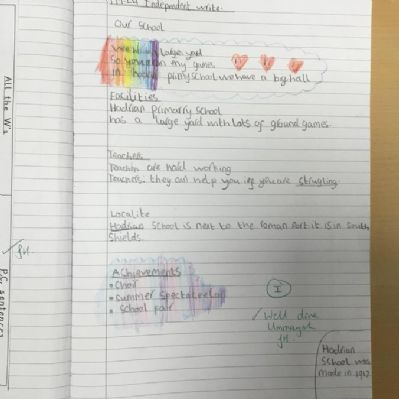 Independent write
Our School
We have Large yard
So you can play games
in primary school we have a big hall
Facilities
Hadrian primarry School
has a large yard with lots of ground games
Teachers
Teachers are hard working
Teachers: they can help you if you are struggling
Localite
Hadrian School is next to the Roman Fort it is in South
Shields.
Achievements
• choir
• summer Spectacular
• School fair
I
Well done
Hadrian
School was
made in
All the W's
sentences